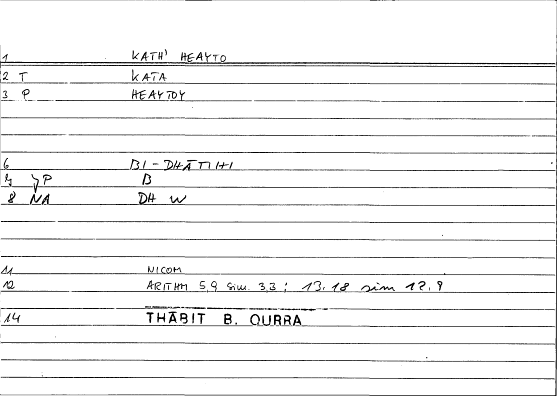 1 KATH' HEAYTO
2 T KATA
3 P HEAYTOY
6 BI-DHĀTIHI
7 P B
8 NA DH W
11 NICOM
12 ARITHM 5,9 sim. 3,3; 13,18 sim 12,9
14 THĀBIT B. QURRA